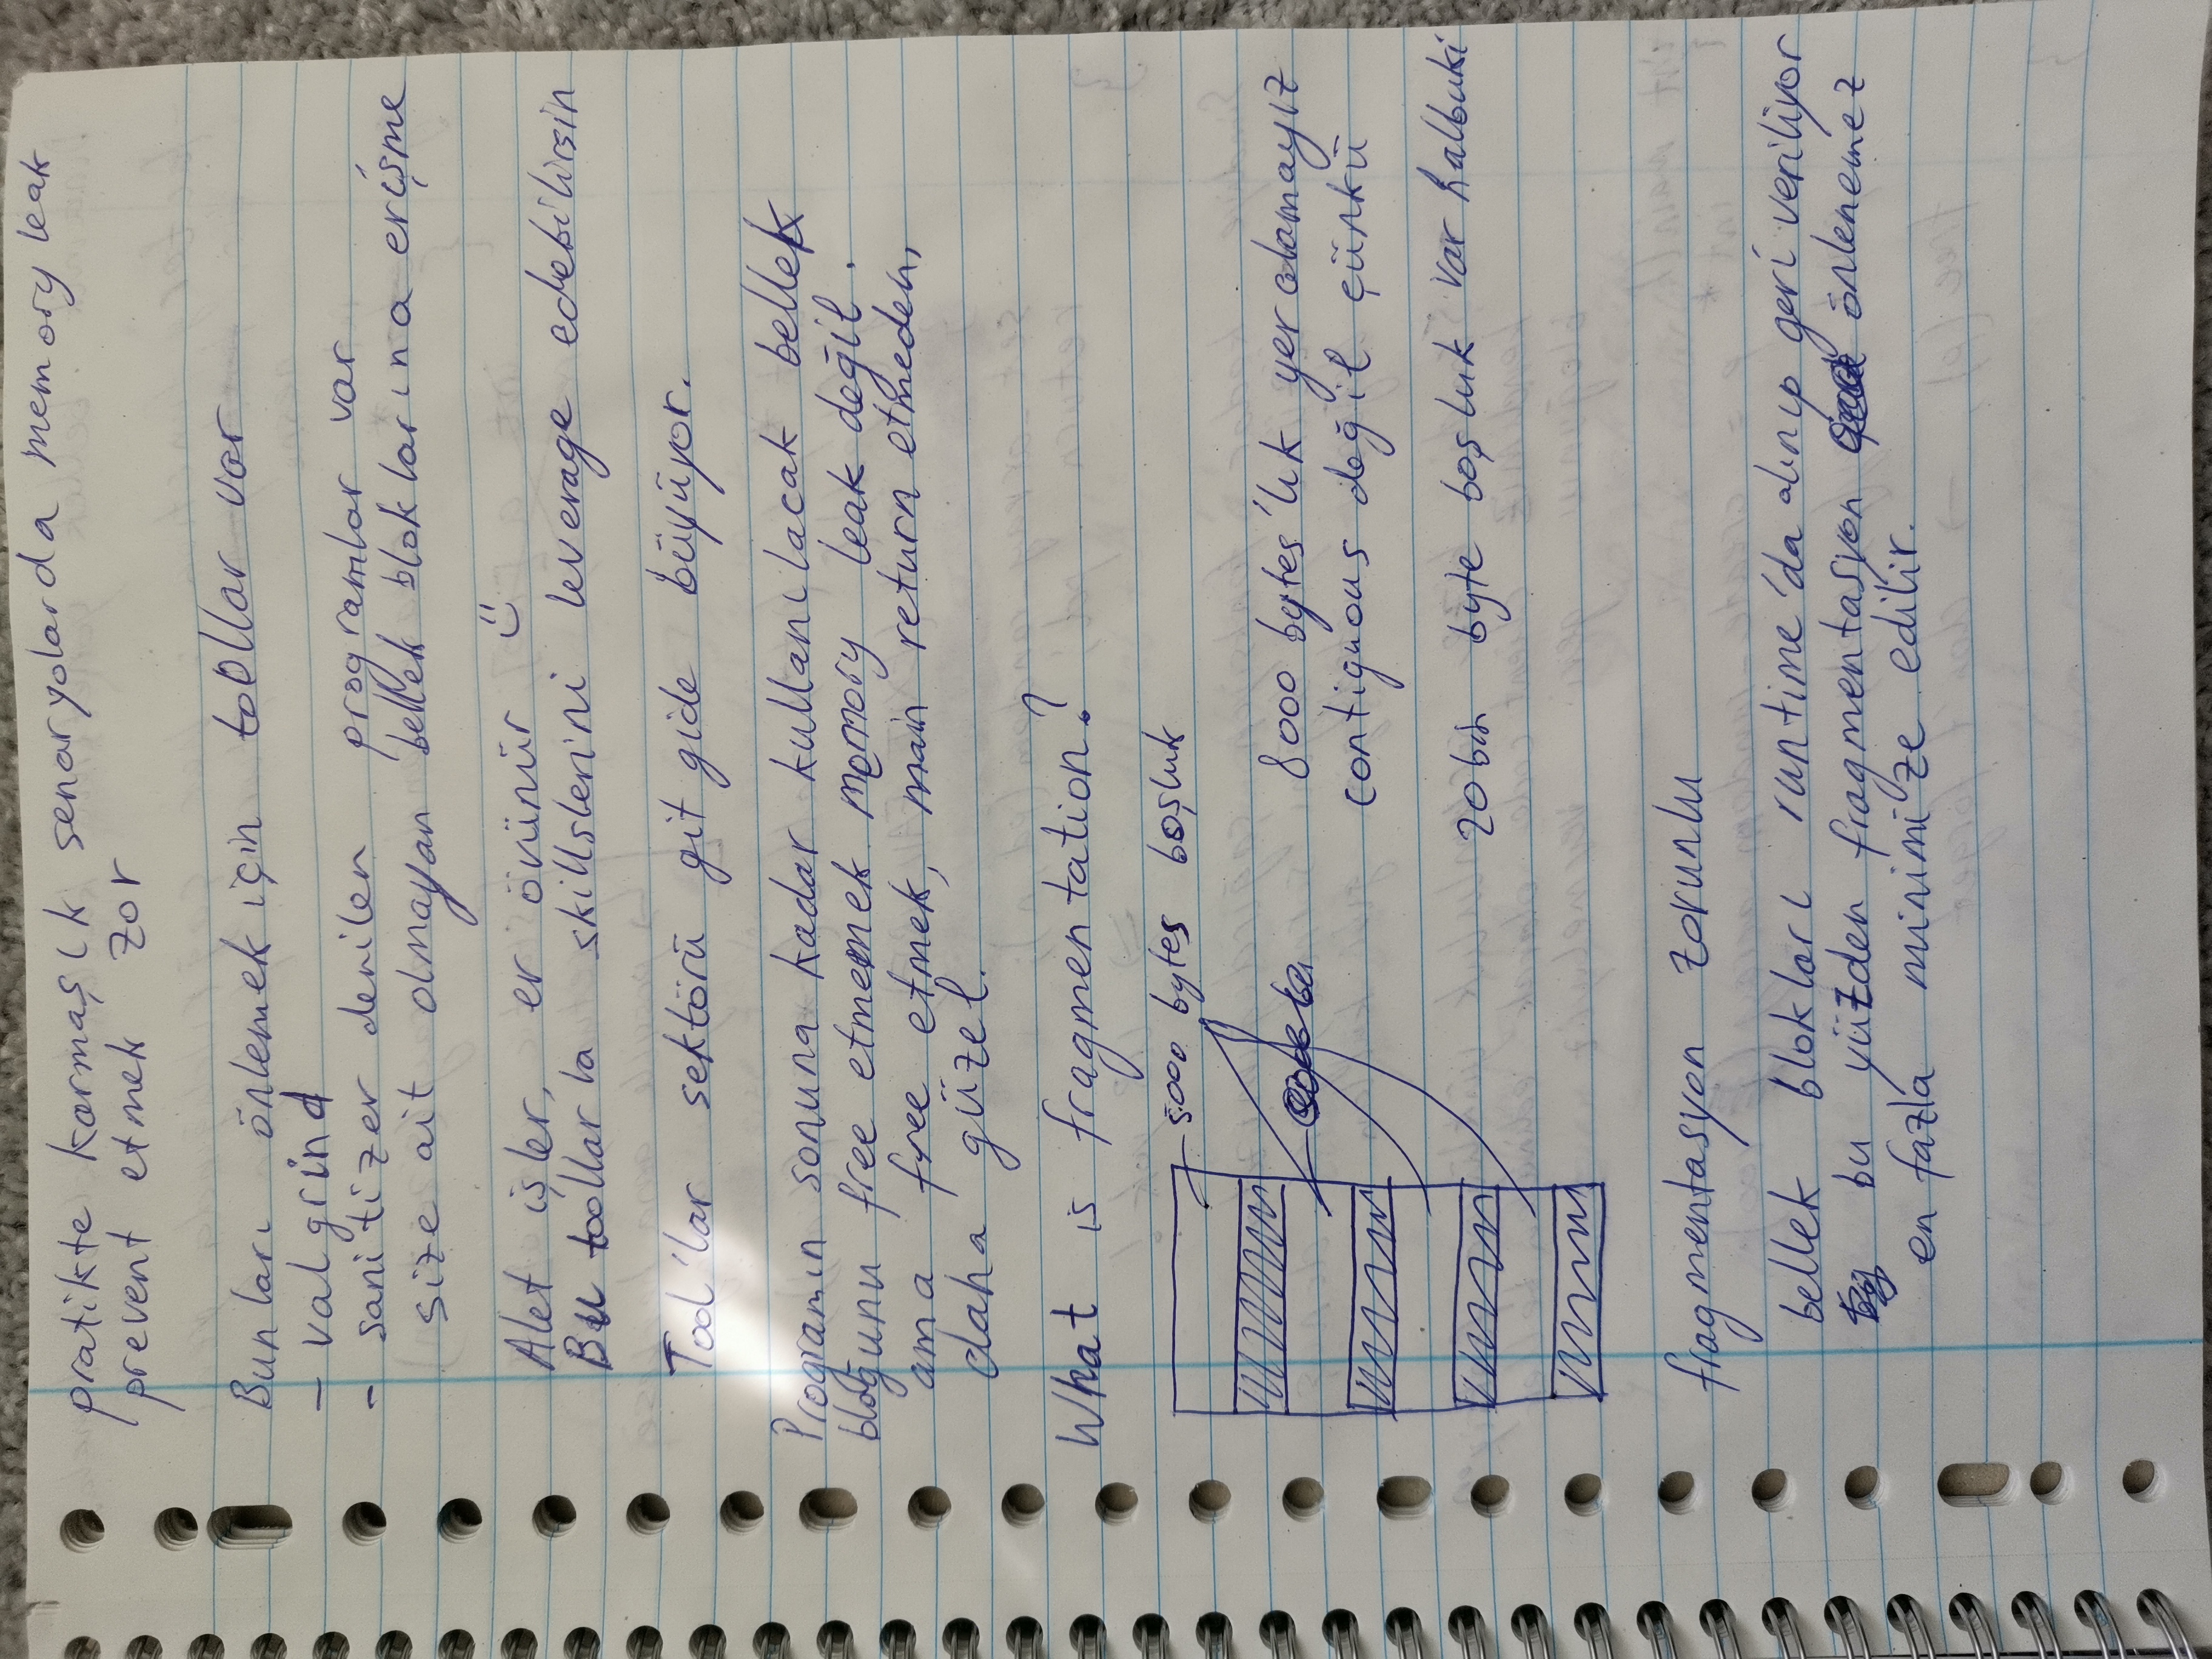 pratikte karmaşık senaryolarda memory leak
prevent etmek zor
Bunları önlemek için toollar var
- valgrind
- sanitizer denilen programlar var
size ait olmayan bellek bloklarına erişme
Alet işler, er övünür ü
Bu toollarla skillslerini leverage edebilirsin
Tool'lar sektörü git gide büyüyor.
Programın sonuna kadar kullanılacak bellek
bloğunu free etmemek memory leak değil.
ama free etmek, main return etmeden,
daha güzel.
What is fragmentation?
5000 bytes boşluk
8000 bytes'lık yer alamayız
contiguous değil çünkü
20 bin byte boşluk var halbuki
fragmentasyon zorunlu
bellek blokları runtime'da alınıp geri veriliyor
bu yüzden fragmentasyon önlenemez
en fazla minimize edilir.